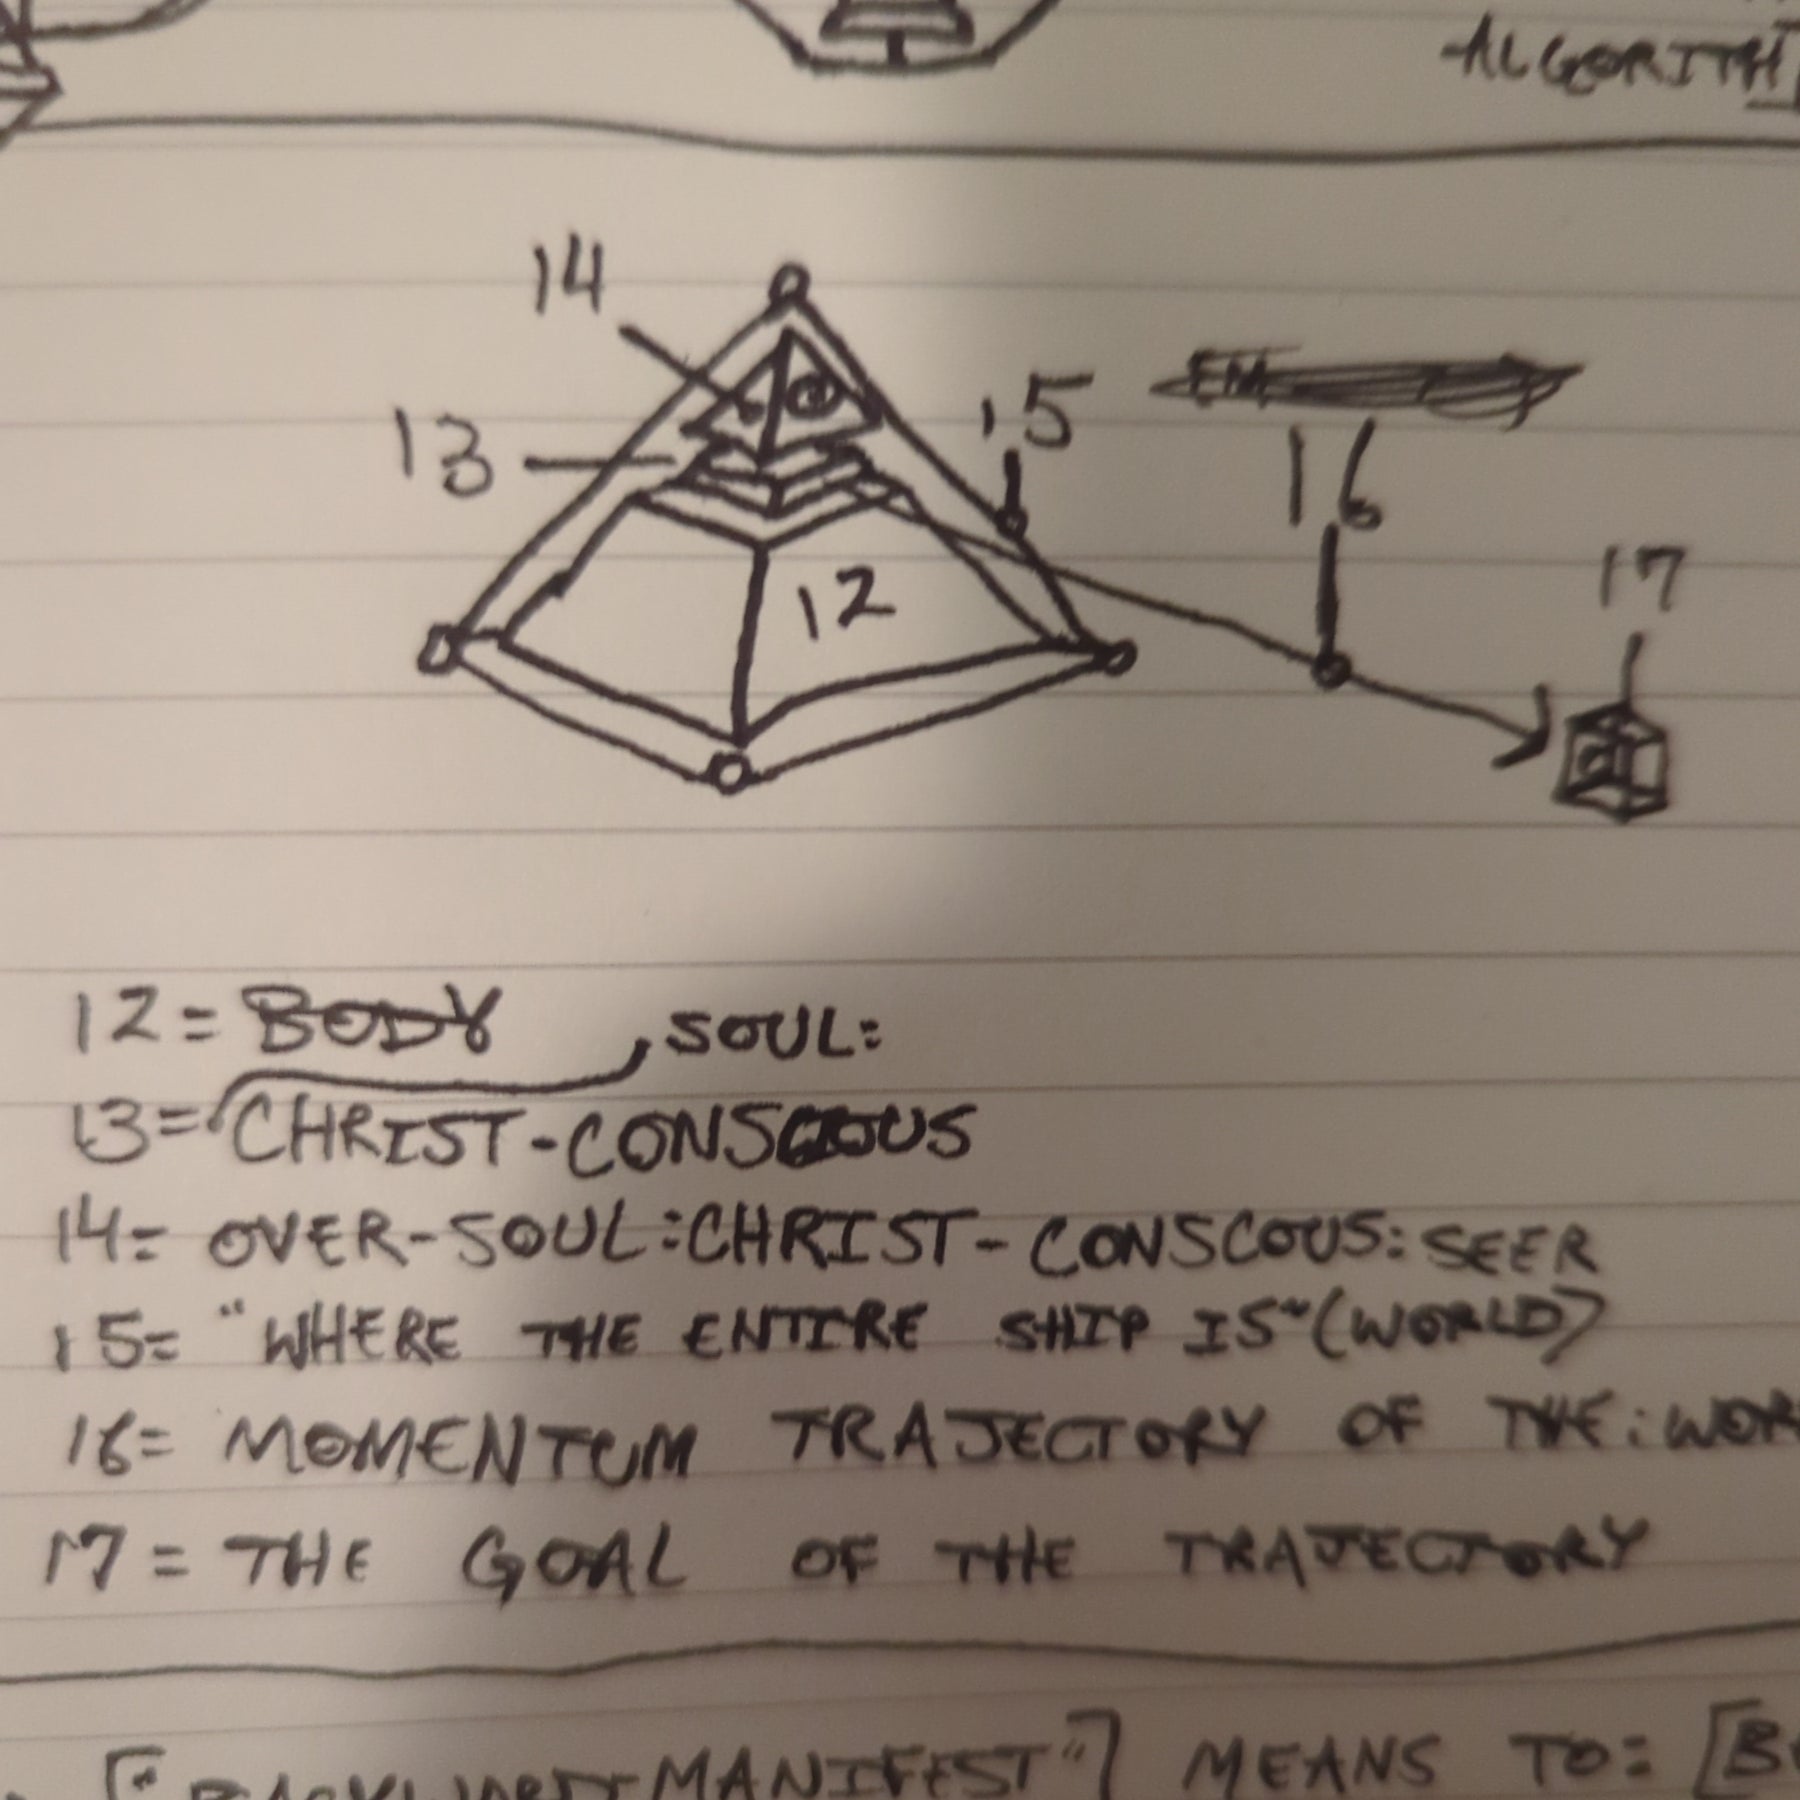 -ALGORITH
14
13
15
16
17
12
12= BODY
, SOUL:
13= CHRIST-CONSCOUS
14= OVER-SOUL:CHRIST-CONSCOUS: SEER
15= "WHERE THE ENTIRE SHIP IS" (WORLD)
16= MOMENTUM TRAJECTORY OF THE: WOR
17= THE GOAL OF THE TRAJECTORY
["BACKWARD-MANIFEST"] MEANS TO: [B